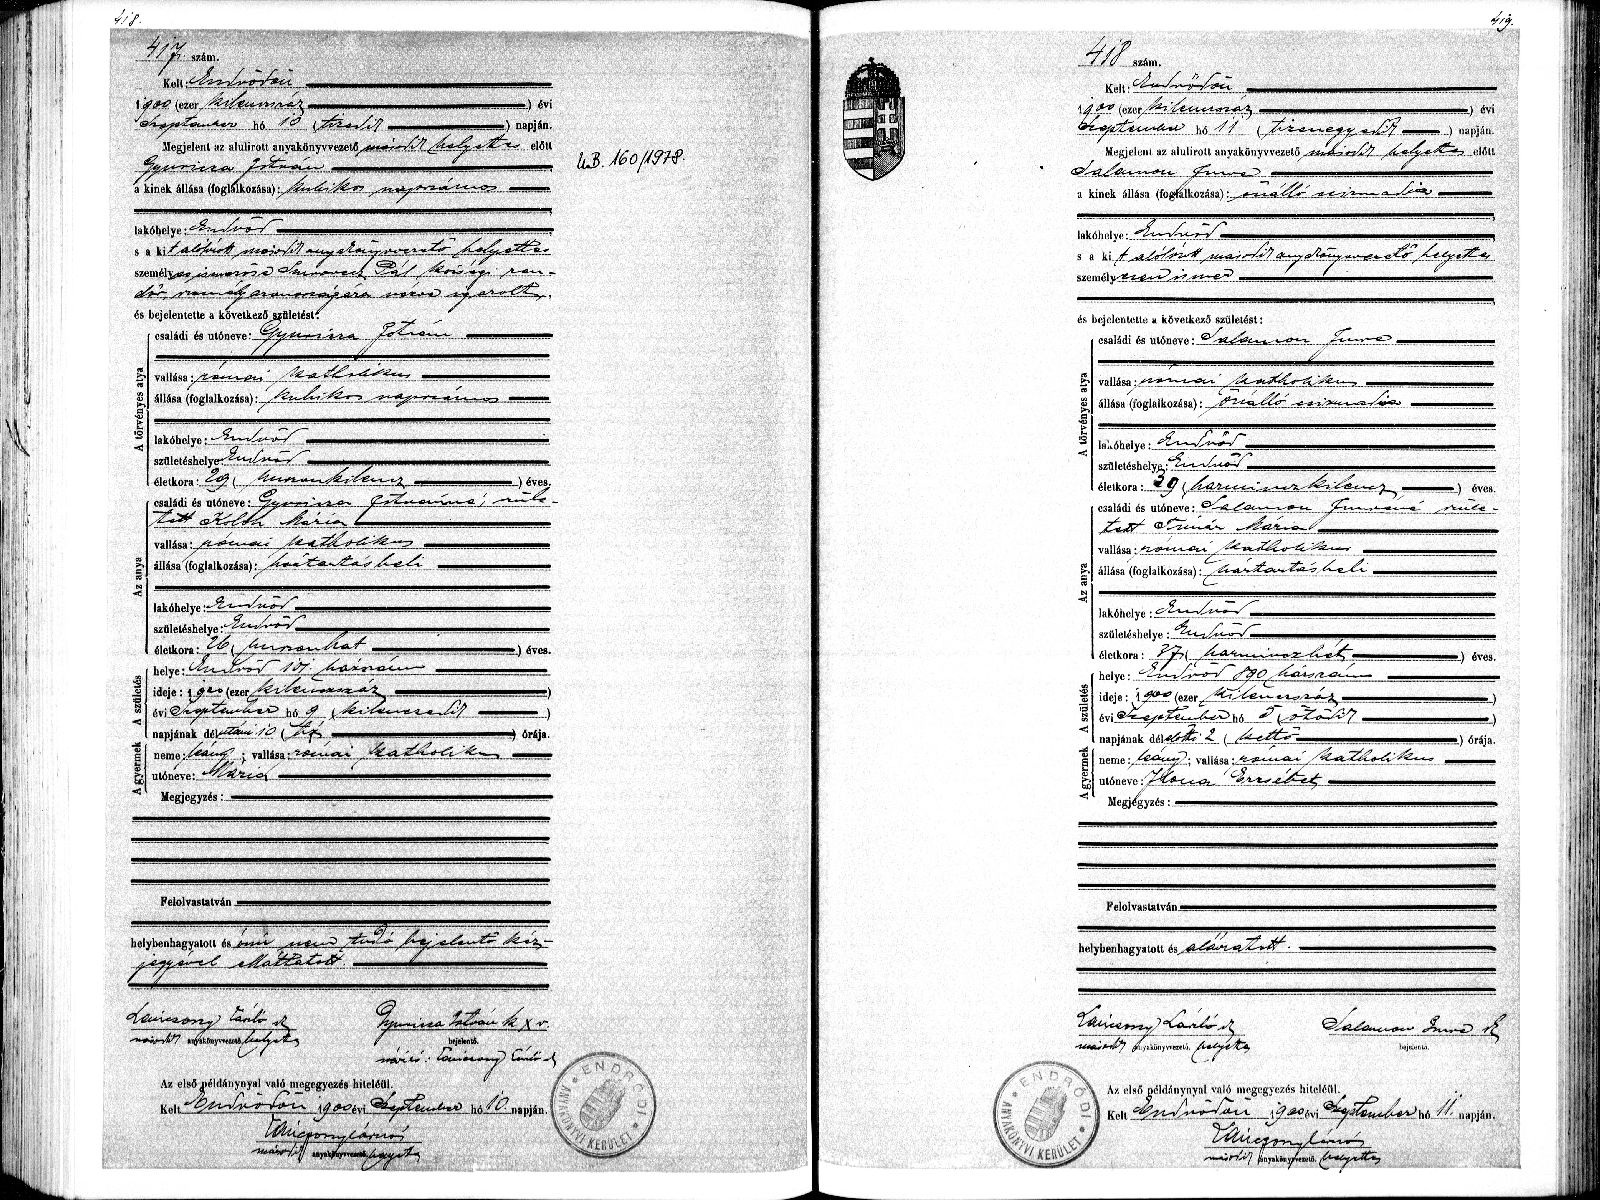 418.
417. szám.
Kelt: Endrődön
1900 (ezer kilencszáz ) évi
Szeptember hó 10 (tizedik ) napján.
Megjelent az alulirott anyakönyvvezető második helyettes előtt
Gyuricza István
a kinek állása (foglalkozása): kubikos napszámos
lakóhelye: Endrőd
s a kit alólirott második anyakönyvvezető helyettes
személy Pál községi ren-
dőr személyazonosságára nézve igazolt,
és bejelentette a következő születést:
A törvényes atya
családi és utóneve: Gyuricza István
vallása: római katholikus
állása (foglalkozása): kubikos napszámos
lakóhelye: Endrőd
születéshelye: Endrőd
életkora: 29 ( huszonkilencz ) éves.
Az anya
családi és utóneve: Gyuricza Istvánné, szüle-
tett Mária
vallása: római katholikus
állása (foglalkozása): háztartásbeli
lakóhelye: Endrőd
születéshelye: Endrőd
életkora: 26 ( huszonhat ) éves.
A születés
helye: Endrőd házszám
ideje: 1900 (ezer kilencszáz )
évi Szeptember hó 9 (kilenczedik )
napjának délutáni 10 (tíz ) órája.
A gyermek
neme: leány; vallása: római katholikus
utóneve: Mária
Megjegyzés:
Felolvastatván
helybenhagyatott és írni nem tudó bejelentő kéz-
jegyével elláttatott.
Lánczony László
második anyakönyvvezető. helyettes
Gyuricza István k x v.
bejelentő.
névíró: Lánczony László
Az első példánynyal való megegyezés hiteléül.
Kelt Endrődön 1900 évi Szeptember hó 10. napján.
második anyakönyvvezető. helyettes
ENDRŐDI ANYAKÖNYVI KERÜLET
U.B. 160/1978.
419.
418 szám.
Kelt: Endrődön
1900 (ezer kilencszáz ) évi
Szeptember hó 11 ( tizenegyedik ) napján.
Megjelent az alulirott anyakönyvvezető második helyettes előtt
Salamon Imre
a kinek állása (foglalkozása): önálló csizmadia
lakóhelye: Endrőd
s a kit alólirott második anyakönyvvezető helyettes
személyesen ismer
és bejelentette a következő születést:
A törvényes atya
családi és utóneve: Salamon Imre
vallása: római katholikus
állása (foglalkozása): önálló csizmadia
lakóhelye: Endrőd
születéshelye: Endrőd
életkora: 39 (harminczkilencz ) éves.
Az anya
családi és utóneve: Salamon Imréné szüle-
tett Mária
vallása: római katholikus
állása (foglalkozása): háztartásbeli
lakóhelye: Endrőd
születéshelye: Endrőd
életkora: 37 (harminczhét ) éves.
A születés
helye: Endrőd 890 házszám
ideje: 1900 (ezer kilencszáz )
évi Szeptember hó 5 (ötödik )
napjának délelőtti 2 ( kettő ) órája.
A gyermek
neme: leány; vallása: római katholikus
utóneve: Ilona Erzsébet
Megjegyzés:
Felolvastatván
helybenhagyatott és aláiratott.
Lánczony László
második anyakönyvvezető. helyettes
Salamon Imre
bejelentő.
Az első példánynyal való megegyezés hiteléül.
Kelt Endrődön 1900 évi Szeptember hó 11. napján.
második anyakönyvvezető. helyettes
ENDRŐDI ANYAKÖNYVI KERÜLET